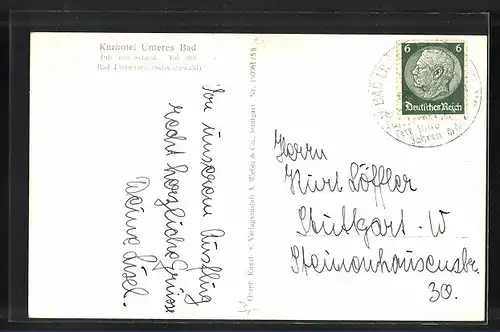 Kurhotel Unteres Bad
Inh.
Bad Liebenzell (Schwarzwald)
Von unserem Ausflug
recht herzliche Grüsse
Deine Liesel.
Graph. Kunst- u. Verlagsanstalt A. Weber & Co., Stuttgart Nr.
6 6
Deutsches Reich
BAD
seit
Jahren
Herrn
Kurt Löffler
Stuttgart-W
Steinenhausenstr.
30.